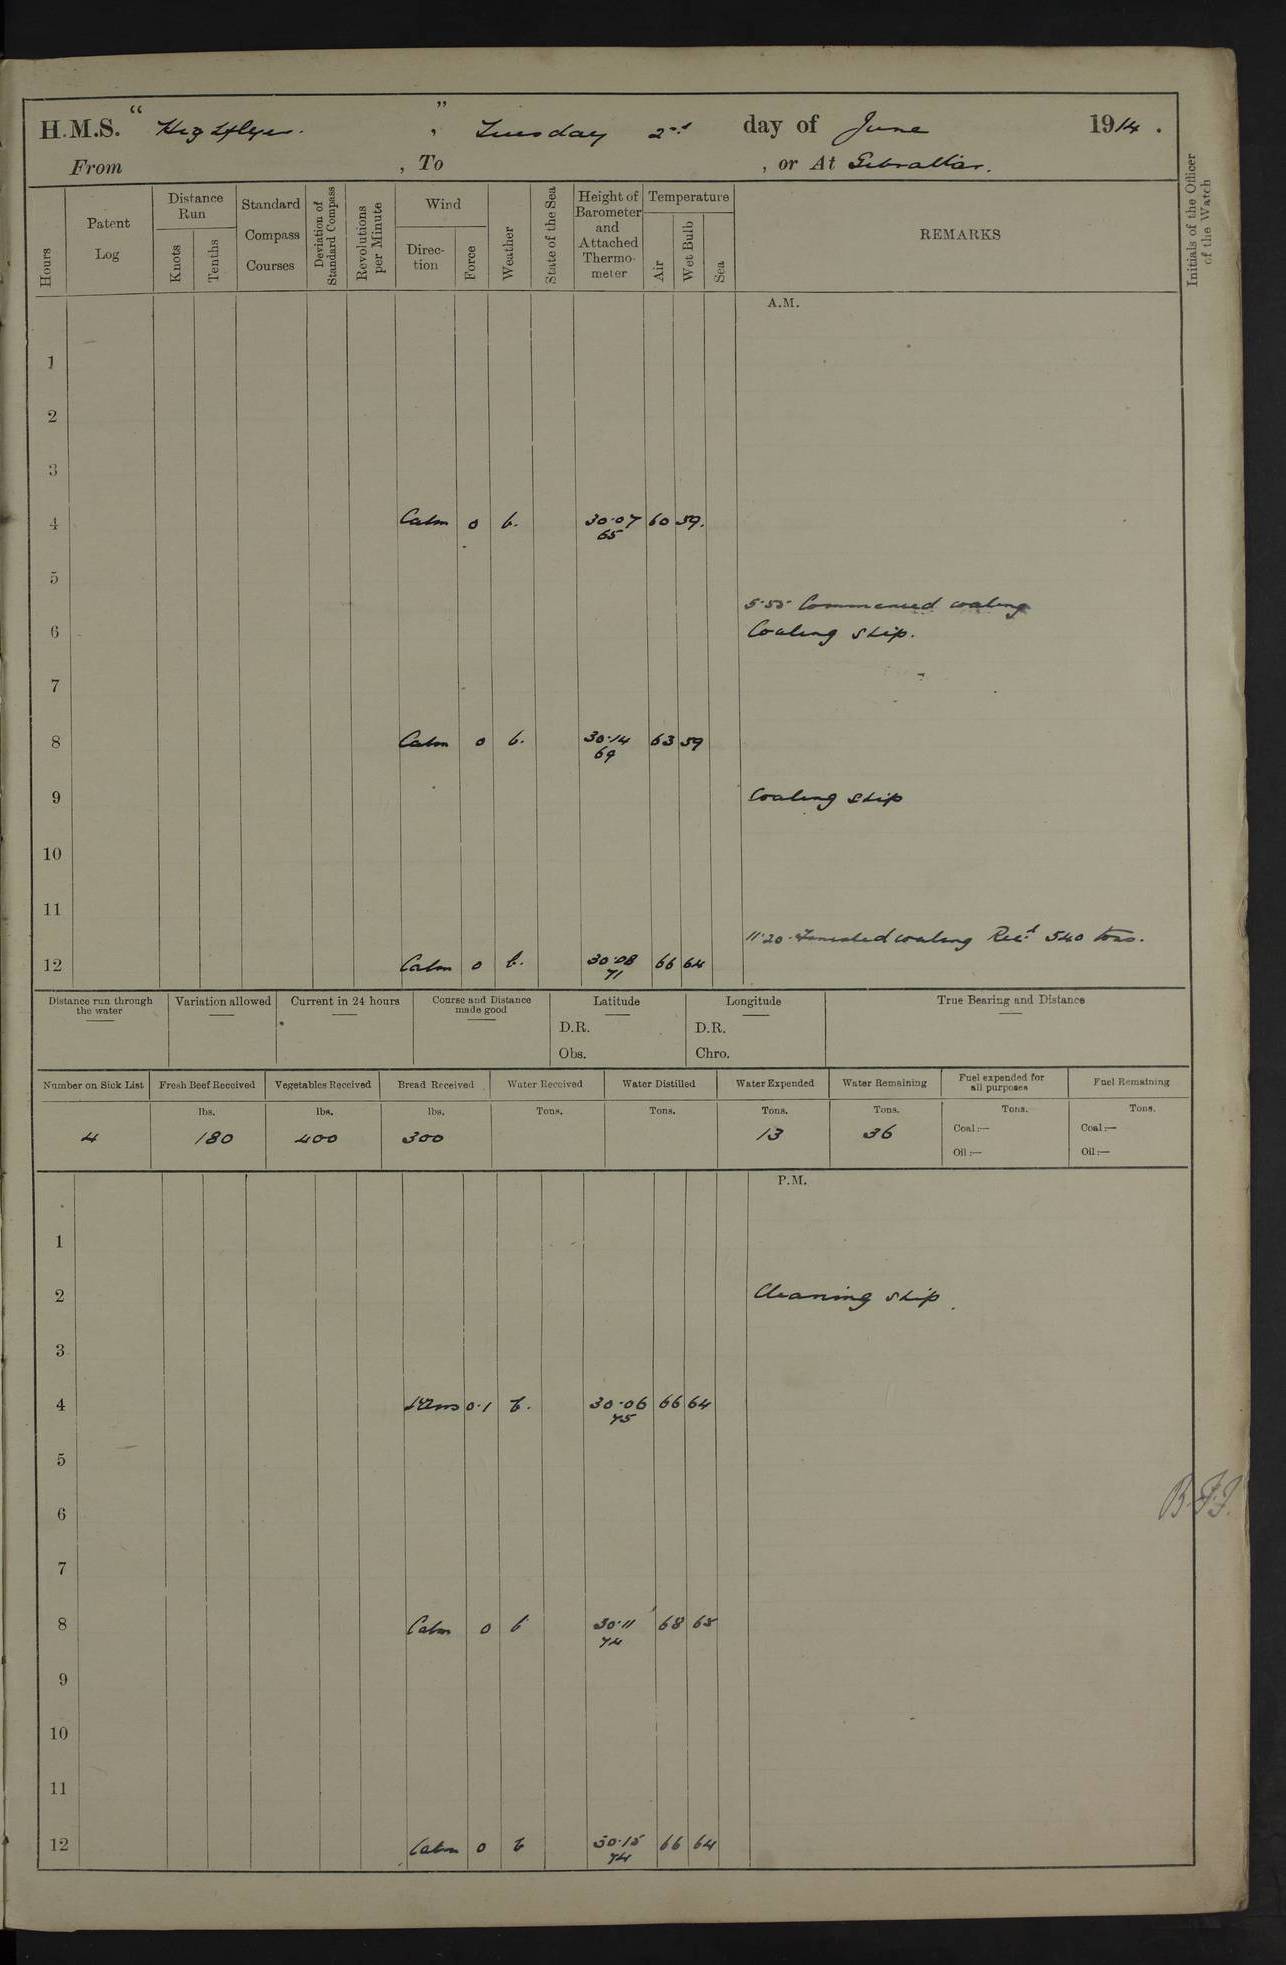 H.M.S. “ Highflyer. ” , Tuesday 2nd day of June 1914.
From , To , or At Gibraltar.
Hours
Patent Log
Distance Run
Knots
Tenths
Standard Compass Courses
Deviation of Standard Compass
Revolutions per Minute
Wind
Direc-tion
Force
Weather
State of the Sea
Height of Barometer and Attached Thermo-meter
Temperature
Air
Wet Bulb
Sea
REMARKS
Initials of the Officer of the Watch
A.M.
1
2
3
4 Calm 0 b. 30·07 60 59.
65
5
5·55 Commenced coaling
6 Coaling ship.
7
8 Calm 0 b. 30·14 63 59
69
9 Coaling ship
10
11
11·20 Finished coaling Recd 540 tons.
12 Calm 0 b. 30·08 66 64
71
Distance run through the water
Variation allowed
Current in 24 hours
Course and Distance made good
Latitude
D.R.
Obs.
Longitude
D.R.
Chro.
True Bearing and Distance
Number on Sick List
Fresh Beef Received
Vegetables Received
Bread Received
Water Received
Water Distilled
Water Expended
Water Remaining
Fuel expended for all purposes
Fuel Remaining
lbs. lbs. lbs. Tons. Tons. Tons. Tons. Tons. Tons.
4 180 400 300 13 36
Coal:— Coal:—
Oil:— Oil:—
P.M.
1
2 Cleaning ship.
3
4 0·1 b. 30·06 66 64
75
5
6 B.F.J.
7
8 Calm 0 b 30·11 68 65
74
9
10
11
12 Calm 0 b 30·15 66 64
74